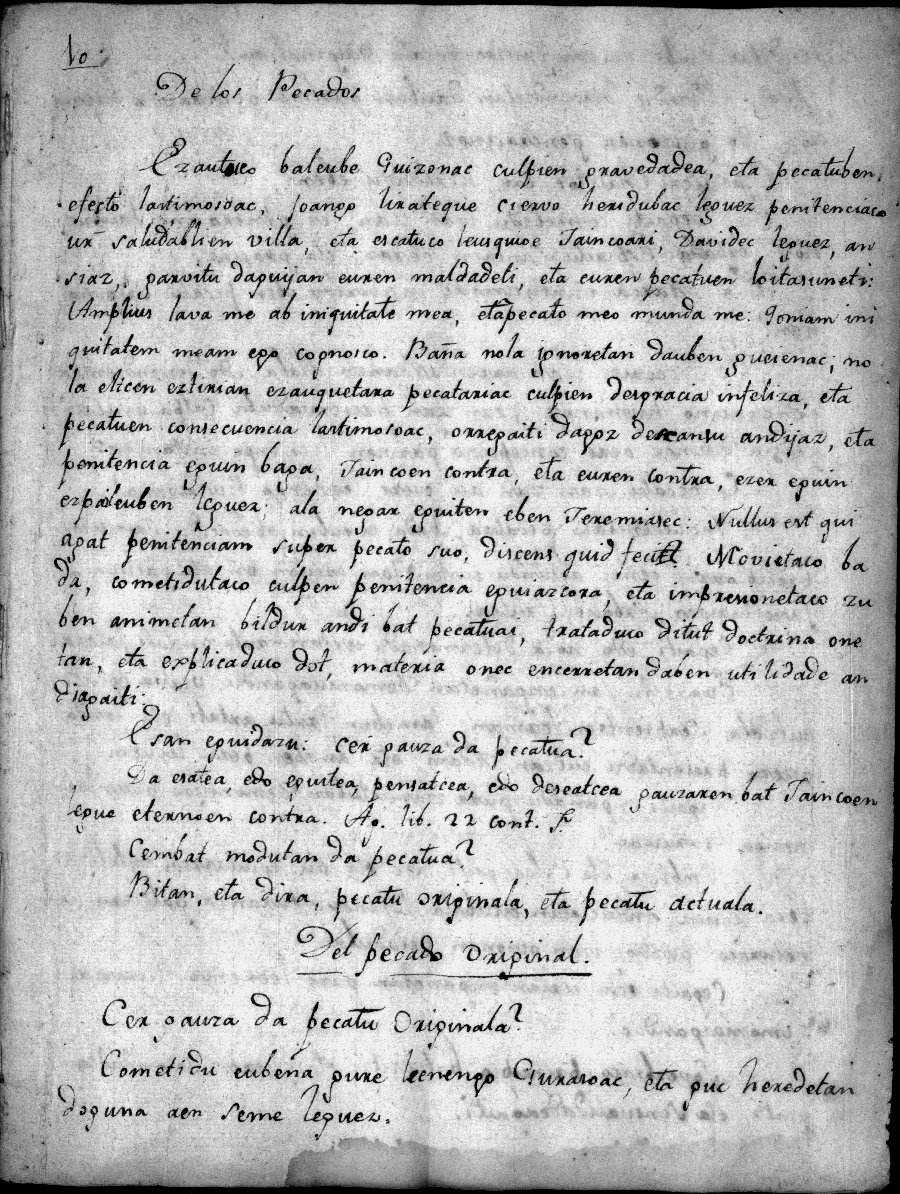 10
De los Pecados
Ezautuco baleube Guizonac culpien gravedadea, eta pecatuben
efecto lastimosoac, Joango lirateque ciervo heridubac leguez penitenciaco
ur saludablien villa, eta escatuco leusquioe Jaincoari, Davidec leguez, an
siaz, garvitu daguijan euren maldadeti, eta euren pecatuen loitasuneti:
Amplius lava me ab iniquitate mea, eta pecato meo munda me: Goniam ini
quitatem meam ego cognosco. Baña nola ignoretan dauben guisenac; no
la elicen eztirian ezauquetara pecatariac culpien desgracia infeliza, eta
pecatuen consecuencia lastimosoac, orregaiti dagoz descansu andijaz, eta
penitencia eguin baga, Jaincoen contra, eta euren contra, ezer eguin
ezpaleuben leguez: ala negar eguiten eben Jeremiasec: Nullus est qui
agat penitenciam super pecato suo, discens quid feci? Movietaco ba
da, cometidutaco culpen penitencia eguiazcora, eta impresionetaco zu
ben animetan bildur andi bat pecatuai, trataduco ditut doctrina one
tan, eta explicaduco dot, materia onec encerretan daben utilidade an
diagaiti:
Esan eguidazu: cer gauza da pecatua?
Da esatea, edo eguitea, pensatcea, edo deseatcea gauzaren bat Jaincoen
legue eternoen contra. Ag. lib. 22 cont. F.
Cembat modutan da pecatua?
Bitan, eta dira, pecatu originala, eta pecatu actuala.
Del pecado original.
Cer gauza da pecatu Originala?
Cometidu eubena gure lenengo Gurasoac, eta guc heredetan
doguna aen seme leguez.